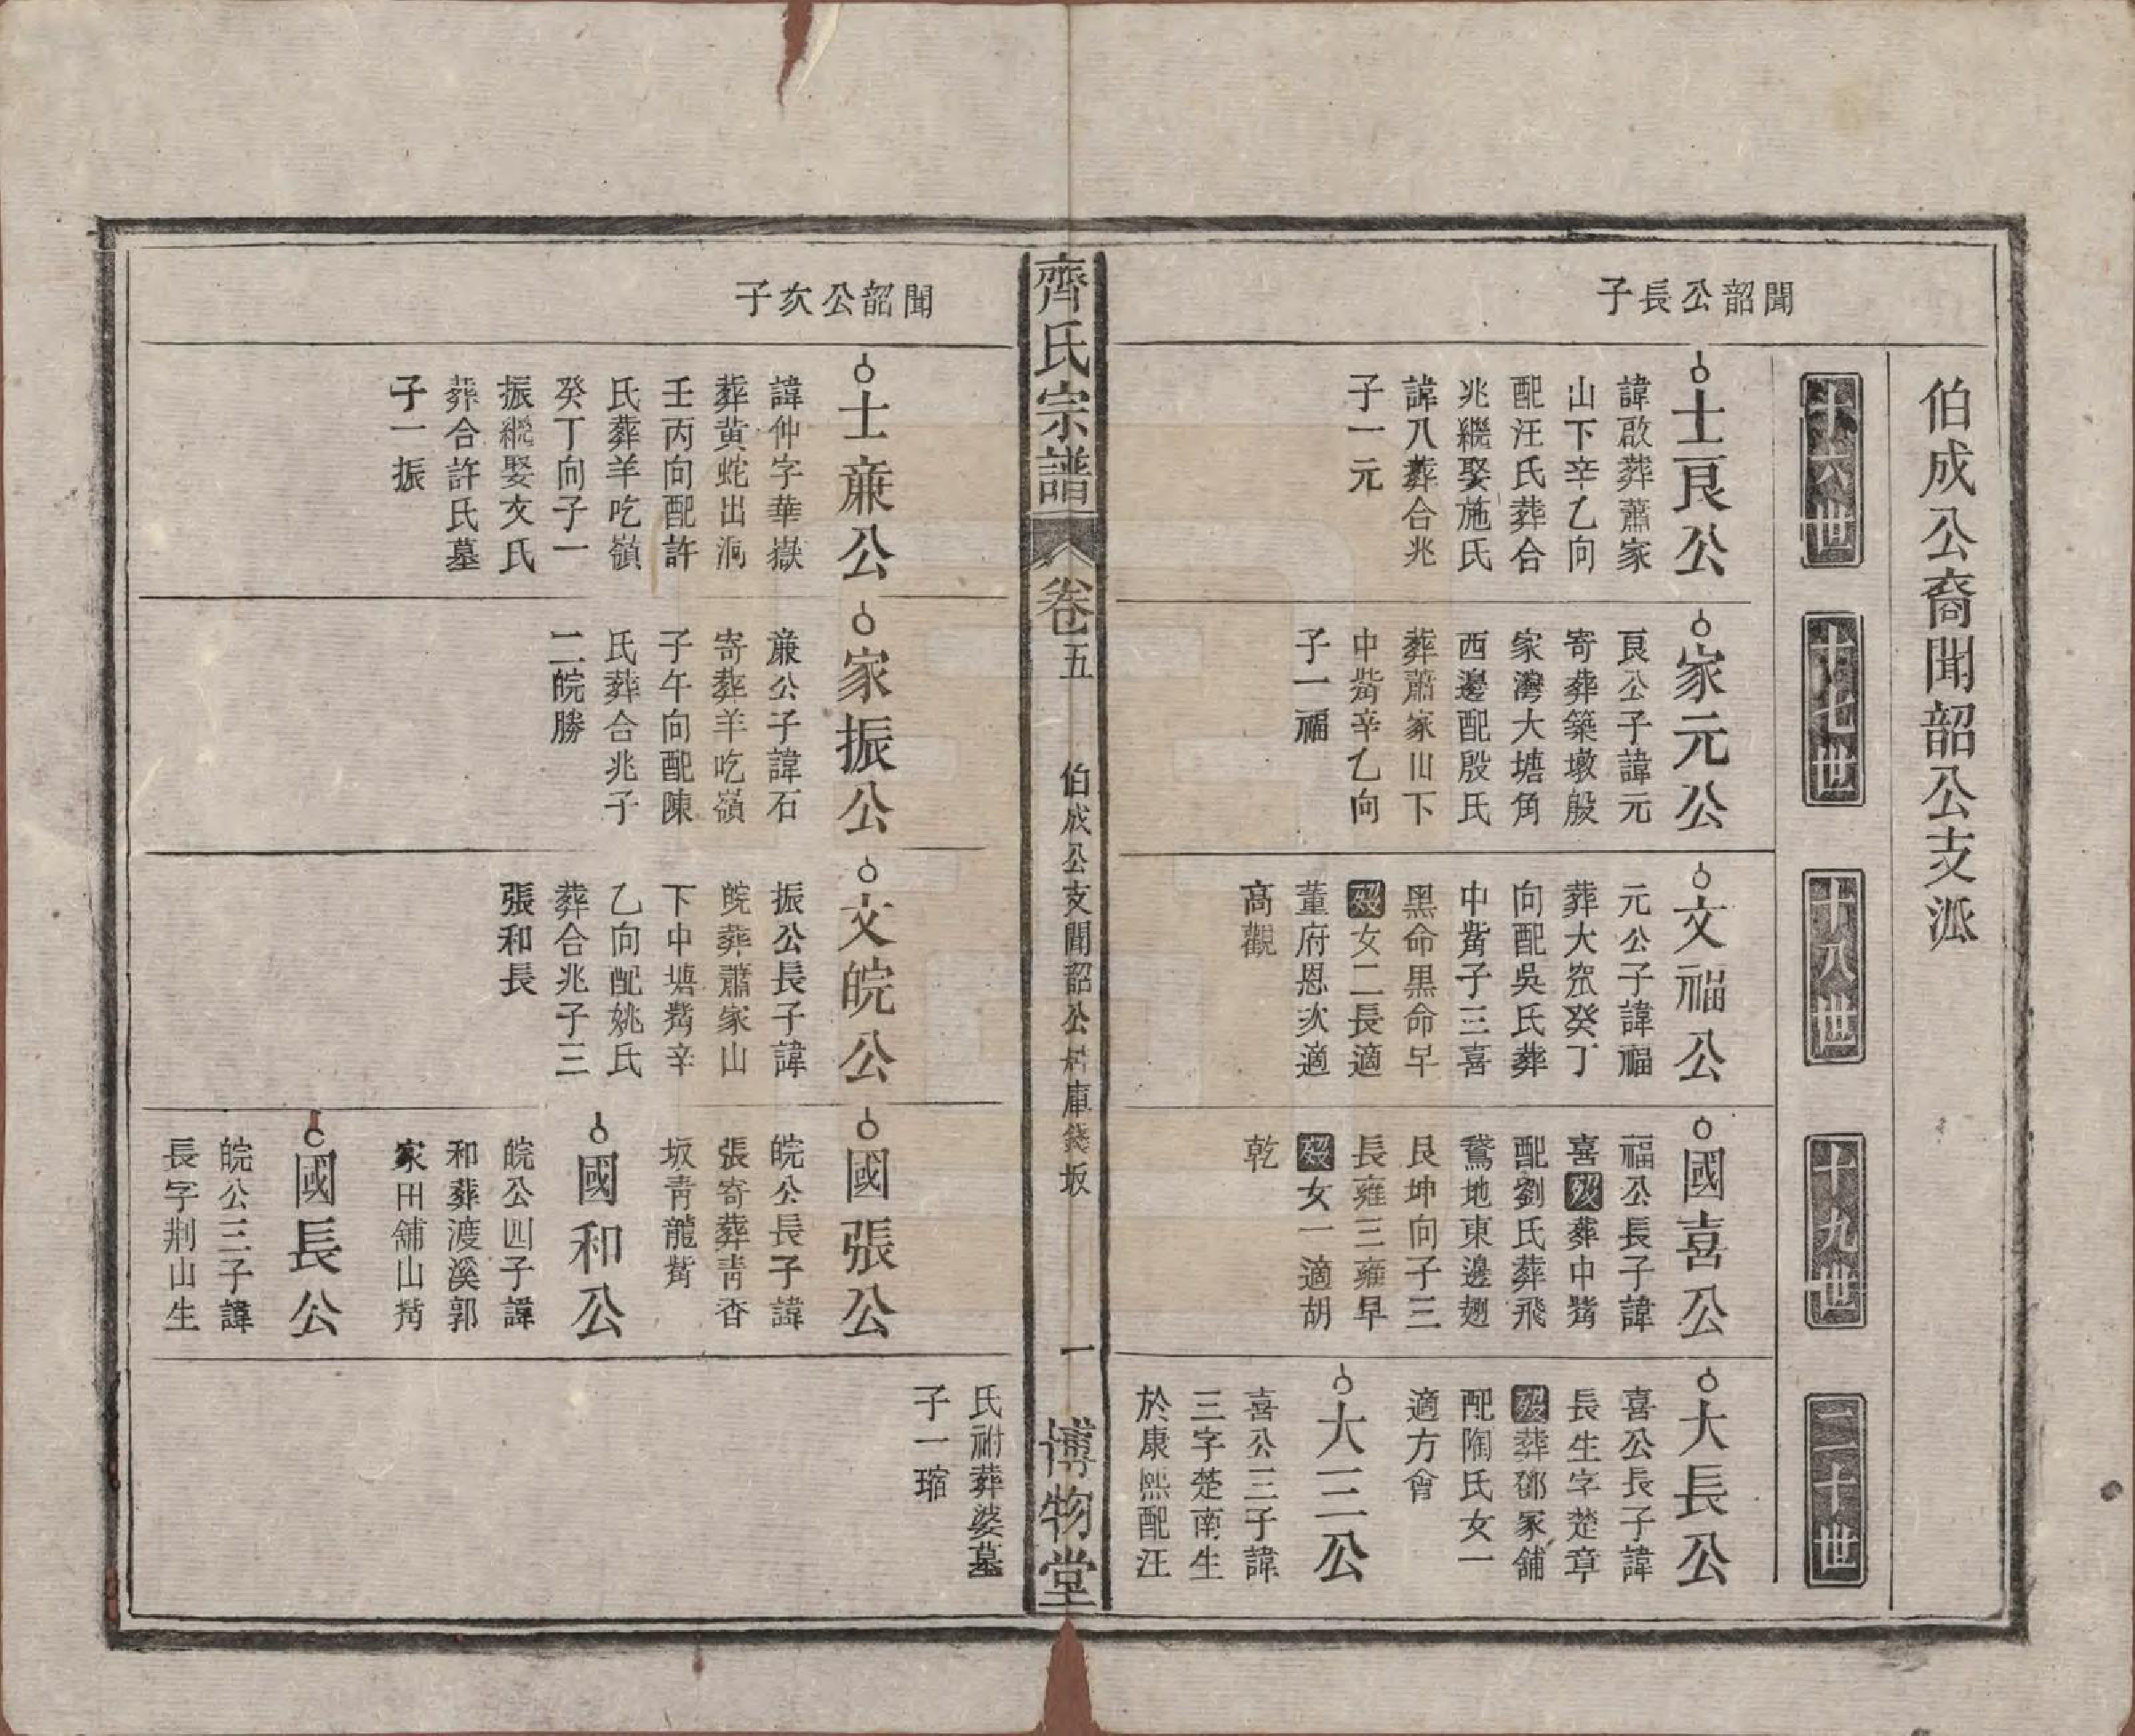 伯成公裔聞韶公支派
十六世
十七世
十八世
十九世
二十世
聞韶公長子
士良公
諱啟葬蕭家
山下辛乙向
配汪氏葬合
兆繼娶施氏
諱八葬合兆
子一元
家元公
良公子諱元
寄葬築墩殷
家灣大塘角
西邊配殷氏
葬蕭家山下
中嘴辛乙向
子一福
文福公
元公子諱福
葬大窊癸丁
向配吳氏葬
中嘴子三喜
黑命黑命早
歿女二長適
董府恩次適
高觀
國喜公
福公長子諱
喜歿葬中嘴
配劉氏葬飛
鵞地東邊趔
艮坤向子三
長雍三雍早
歿女一適胡
乾
大長公
喜公長子諱
長生字楚章
歿葬鄧家舖
配陶氏女一
適方會
大三公
喜公三子諱
三字楚南生
於康熙配汪
齊氏宗譜
卷五
伯成公支聞韶公居庫錢坂
一
博物堂
氏祔葬婆墓
子一瑠
聞韶公次子
士亷公
諱仲字華嶽
葬黄蛇出洞
壬丙向配許
氏葬羊吃嶺
癸丁向子一
振繼娶文氏
葬合許氏墓
子一振
家振公
亷公子諱石
寄葬羊吃嶺
子午向配陳
氏葬合兆子
二皖勝
文皖公
振公長子諱
皖葬蕭家山
下中塘嘴辛
乙向配姚氏
葬合兆子三
張和長
國張公
皖公長子諱
張寄葬青香
坂青龍嘴
國和公
皖公四子諱
和葬渡溪郭
家田舖山嘴
國長公
皖公三子諱
長字荆山生